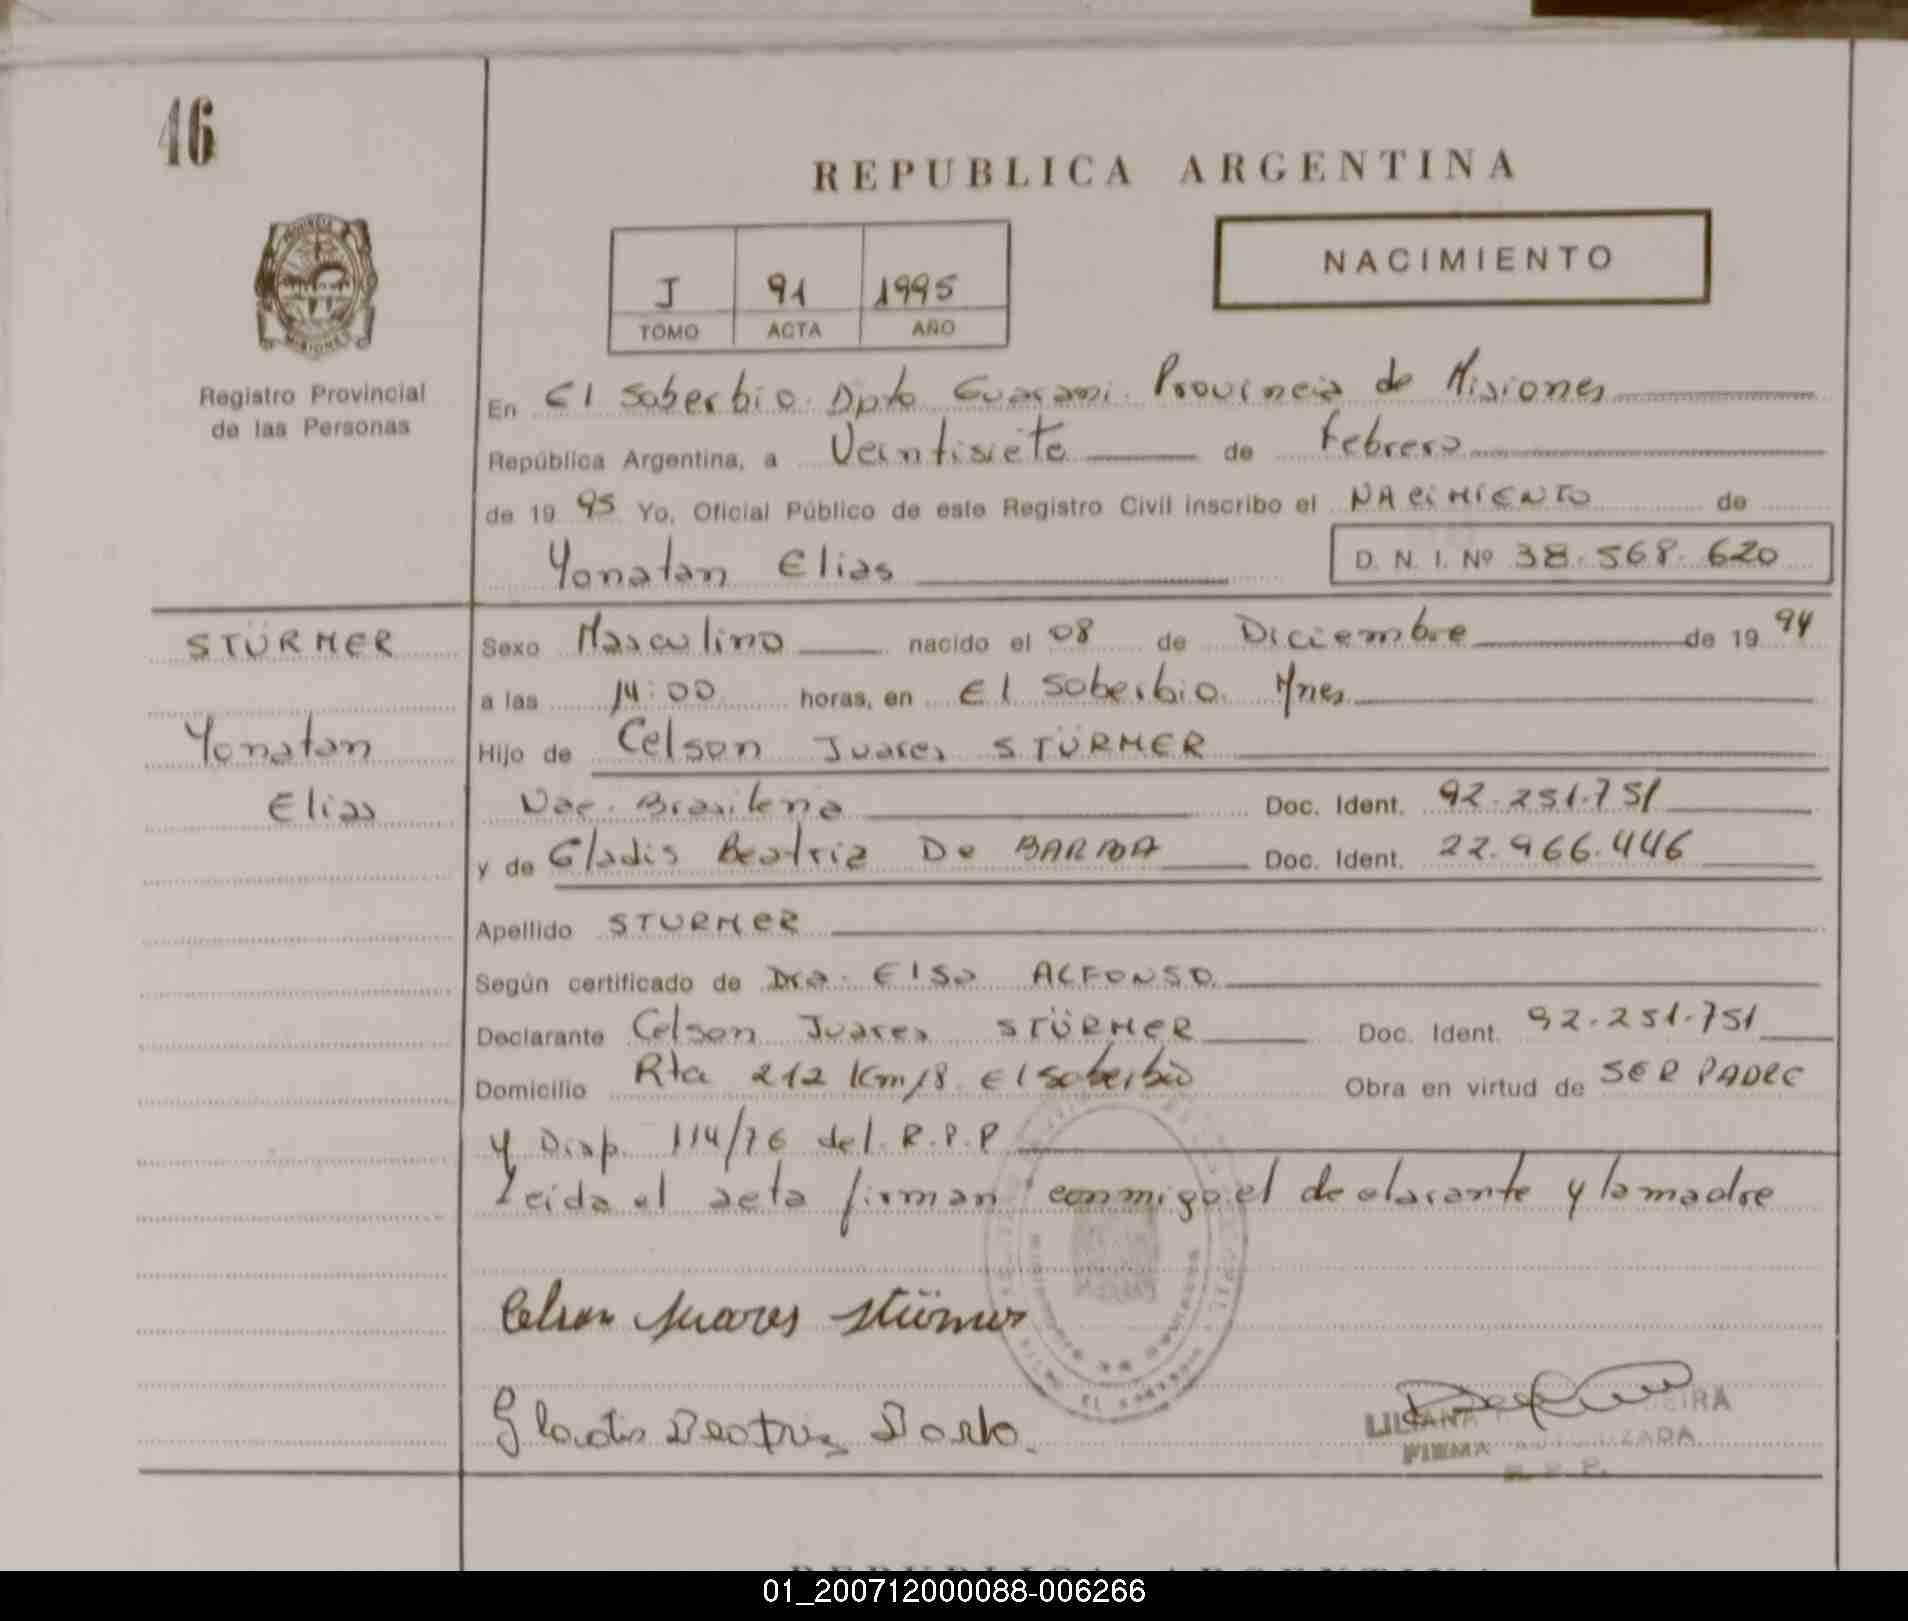 46
REPUBLICA ARGENTINA
NACIMIENTO
J 91 1995
TOMO ACTA AÑO
Registro Provincial
de las Personas
En El Soberbio. Dpto Guarani. Provincia de Misiones
República Argentina, a Veintisiete de Febrero
de 19 95 Yo, Oficial Público de este Registro Civil inscribo el NACIMIENTO de
Yonatan Elias D. N. I. Nº 38.568.620
STÜRMER
Yonatan
Elias
Sexo Masculino nacido el 08 de Diciembre de 19 94
a las 14:00 horas, en El Soberbio. Mnes
Hijo de Celson Juares STÜRMER
Nac. Brasileña Doc. Ident. 92.251.751
y de Gladis Beatriz De Doc. Ident. 22.966.446
Apellido STURMER
Según certificado de Dra. Elsa ALFONSO
Declarante Celson Juares STÜRMER Doc. Ident. 92.251.751
Domicilio Rta 212 Km/8. El Soberbio Obra en virtud de SER PADRE
y Disp. 114/76 del. R.P.P
Leida el acta firman conmigo el declarante y la madre
Celson Juares Stürmer
Gladis Beatriz
LILIANA
FIRMA AUTORIZADA
R. P. P.
REPUBLICA ARGENTINA
01_200712000088-006266